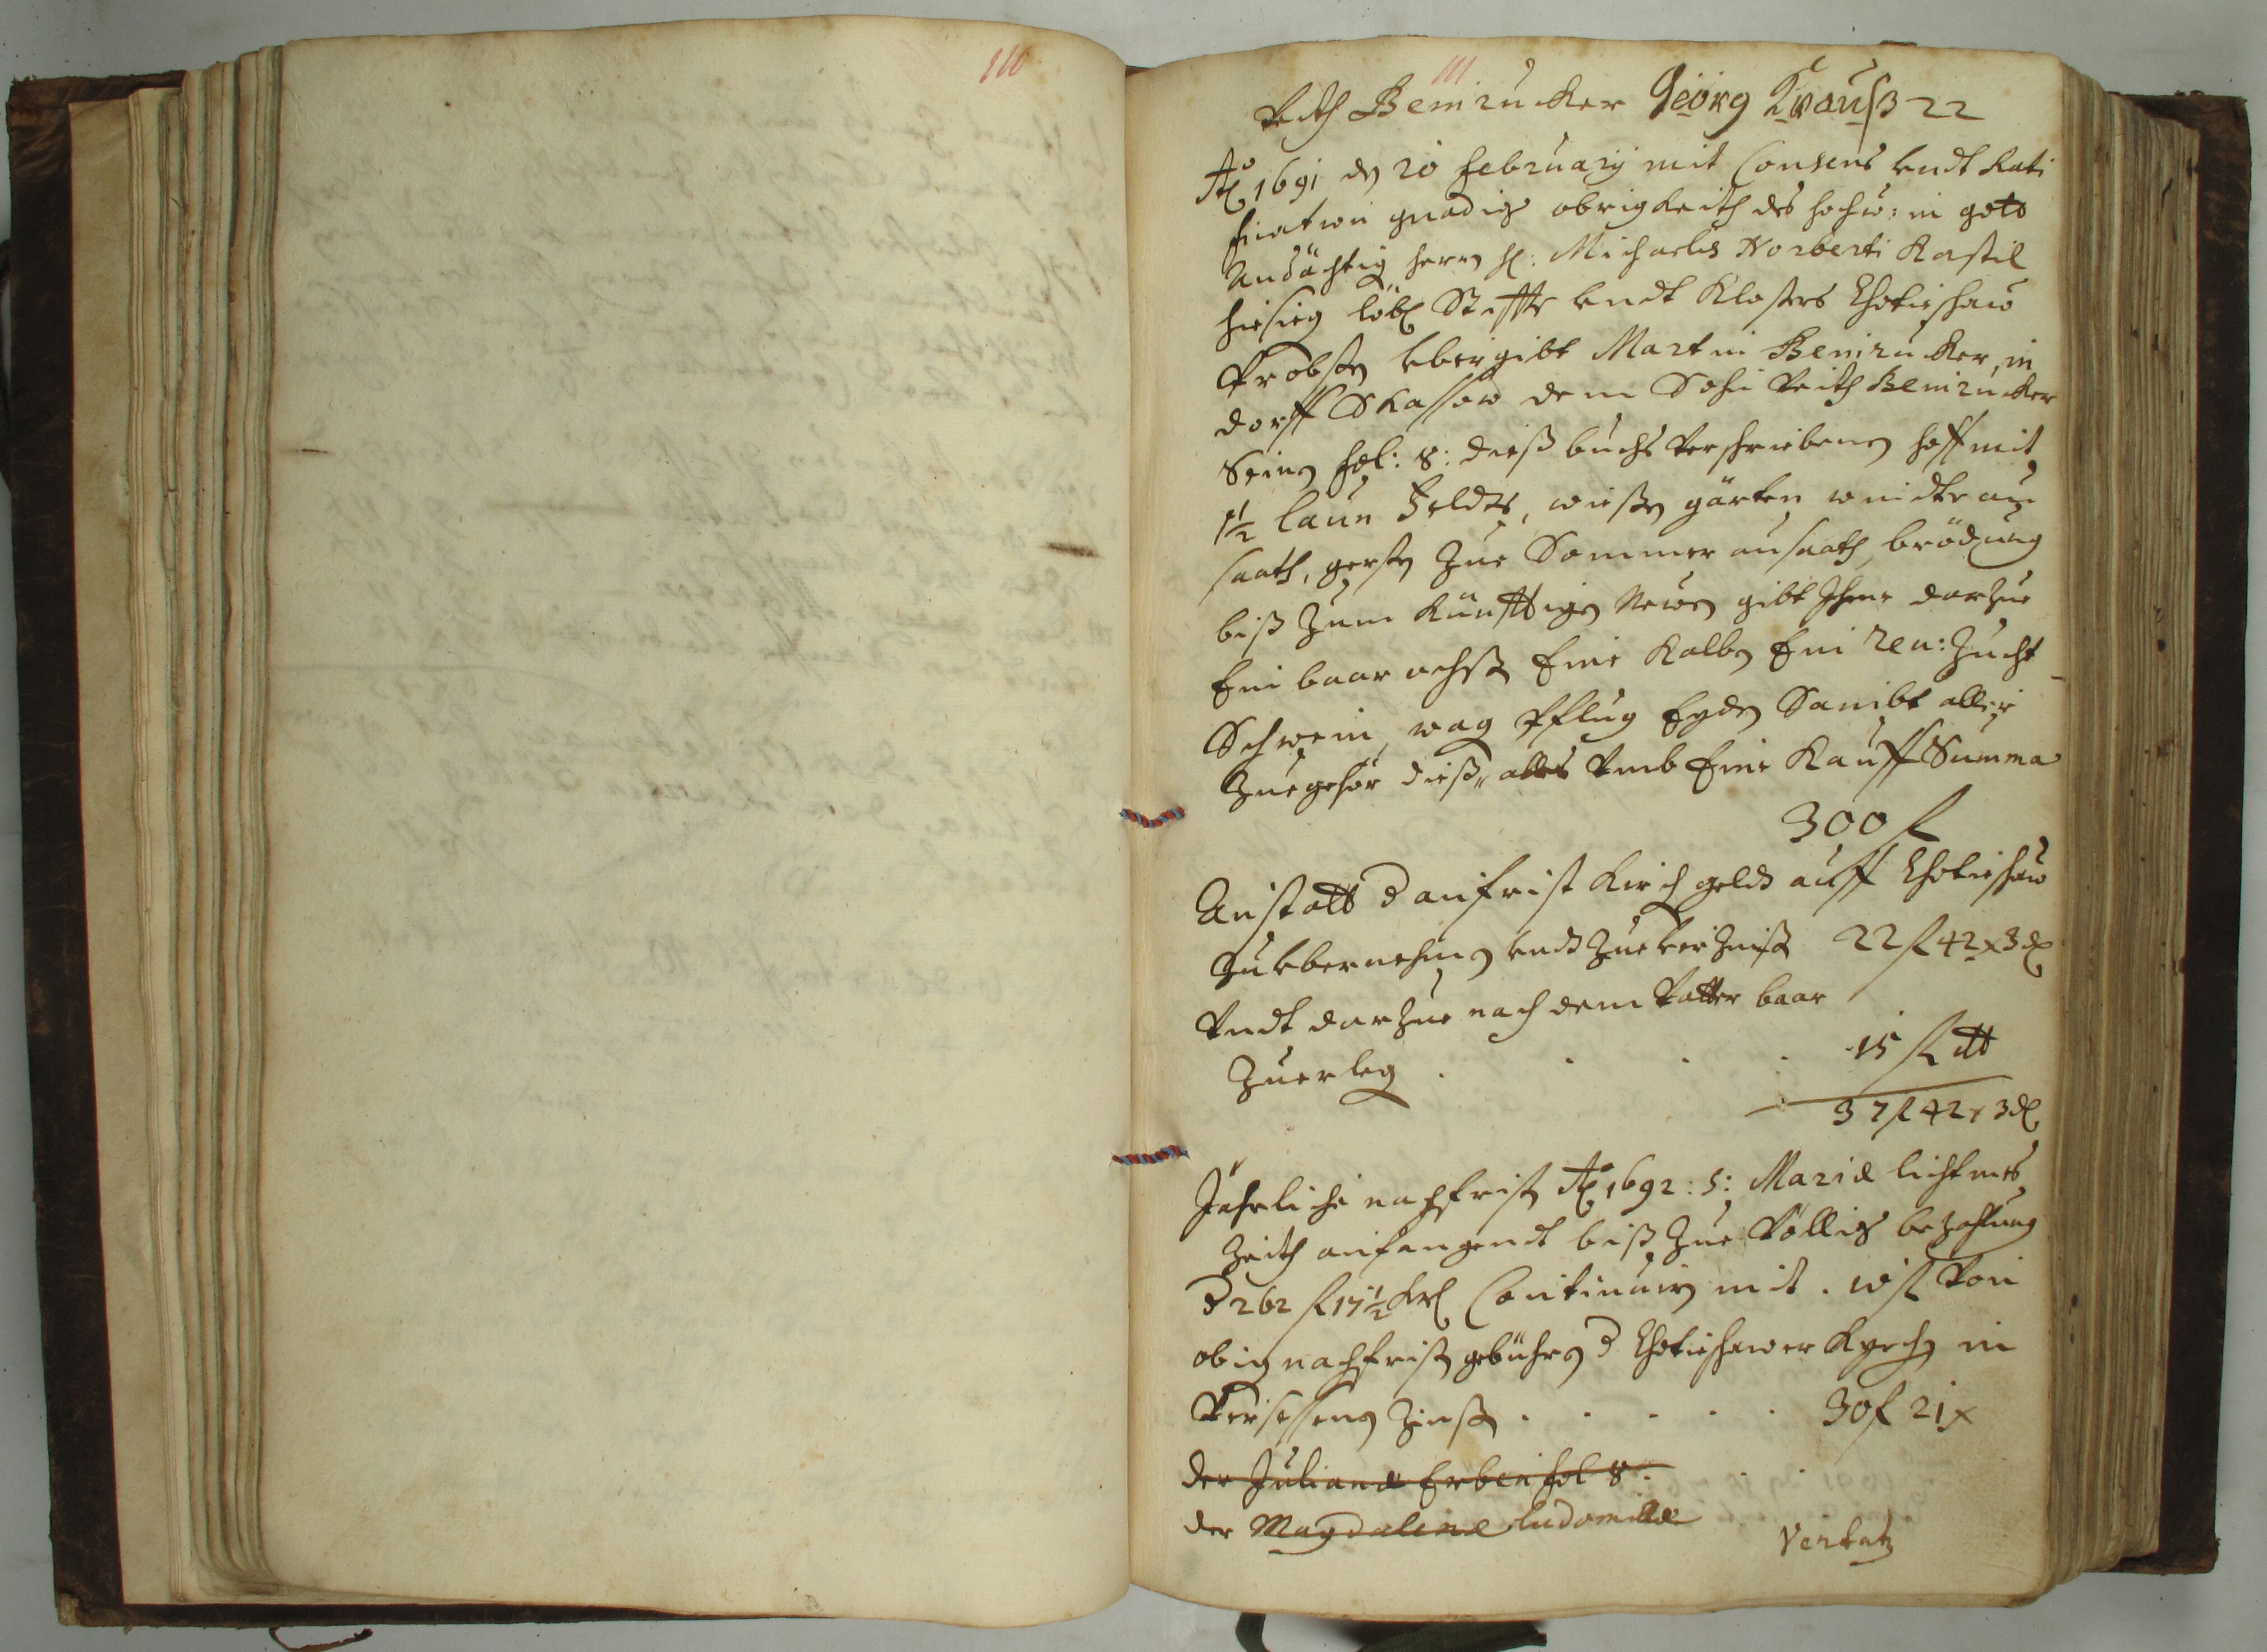 110
111
Veith Beninzucker Georg Krauß 22
Ao 1691 den 20 February mit Consens vndt Rati
fication gnädiger obrigkeith des hochw: in gott
Andächtig herrn H: Michaelis Norberti Kastil
hiesieg löbl Stiffts vndt Klosters Chotieschaw
Probsten vbergibt Martin Beninzucker, in
dorff Skassow dem Sohn Veith Beninzucker
Seinen fol: 8: dießes buchs verschriebenen hoff mit
1½ laun Feldts, wießen gärten, windter auß
saath, gersten Zue Sommer ausaath, brödtung
biß Zum Künfftigen Newen gibt Ihme darzue
Ein baar ochsen Eine Kalben Ein Zucht
Schwein, wag Pflug Eyden Sambt aller
Zuegehör dießes alles vmb Eine Kauff Summa
300 f
Anstatt d anfrist Kirchgeldt auff Chotieschaw
Zu vbernehmen vndt Zue verzinßen 22 f 42 x 3 d
Vndt darzue nach dem Vatter baar
Zuerleg . . . . 15 f
37 f 42 x 3 d
Jährliche nachfrist Ao 1692: S: Mariæ lichtmeß
Zeith anfangendt biß Zue Völliger bezahlung
d 262 f 17½ Krl Continuiren mit . 10 f Von
obig nachfristen gebühren d Chotieschawer Kyrchen in
Versessenen Zinßen . . . . . 30 f 21 x
der Julianæ Erben fol 8 . . .
der Magdalenæ Ludomillæ
Vertatz